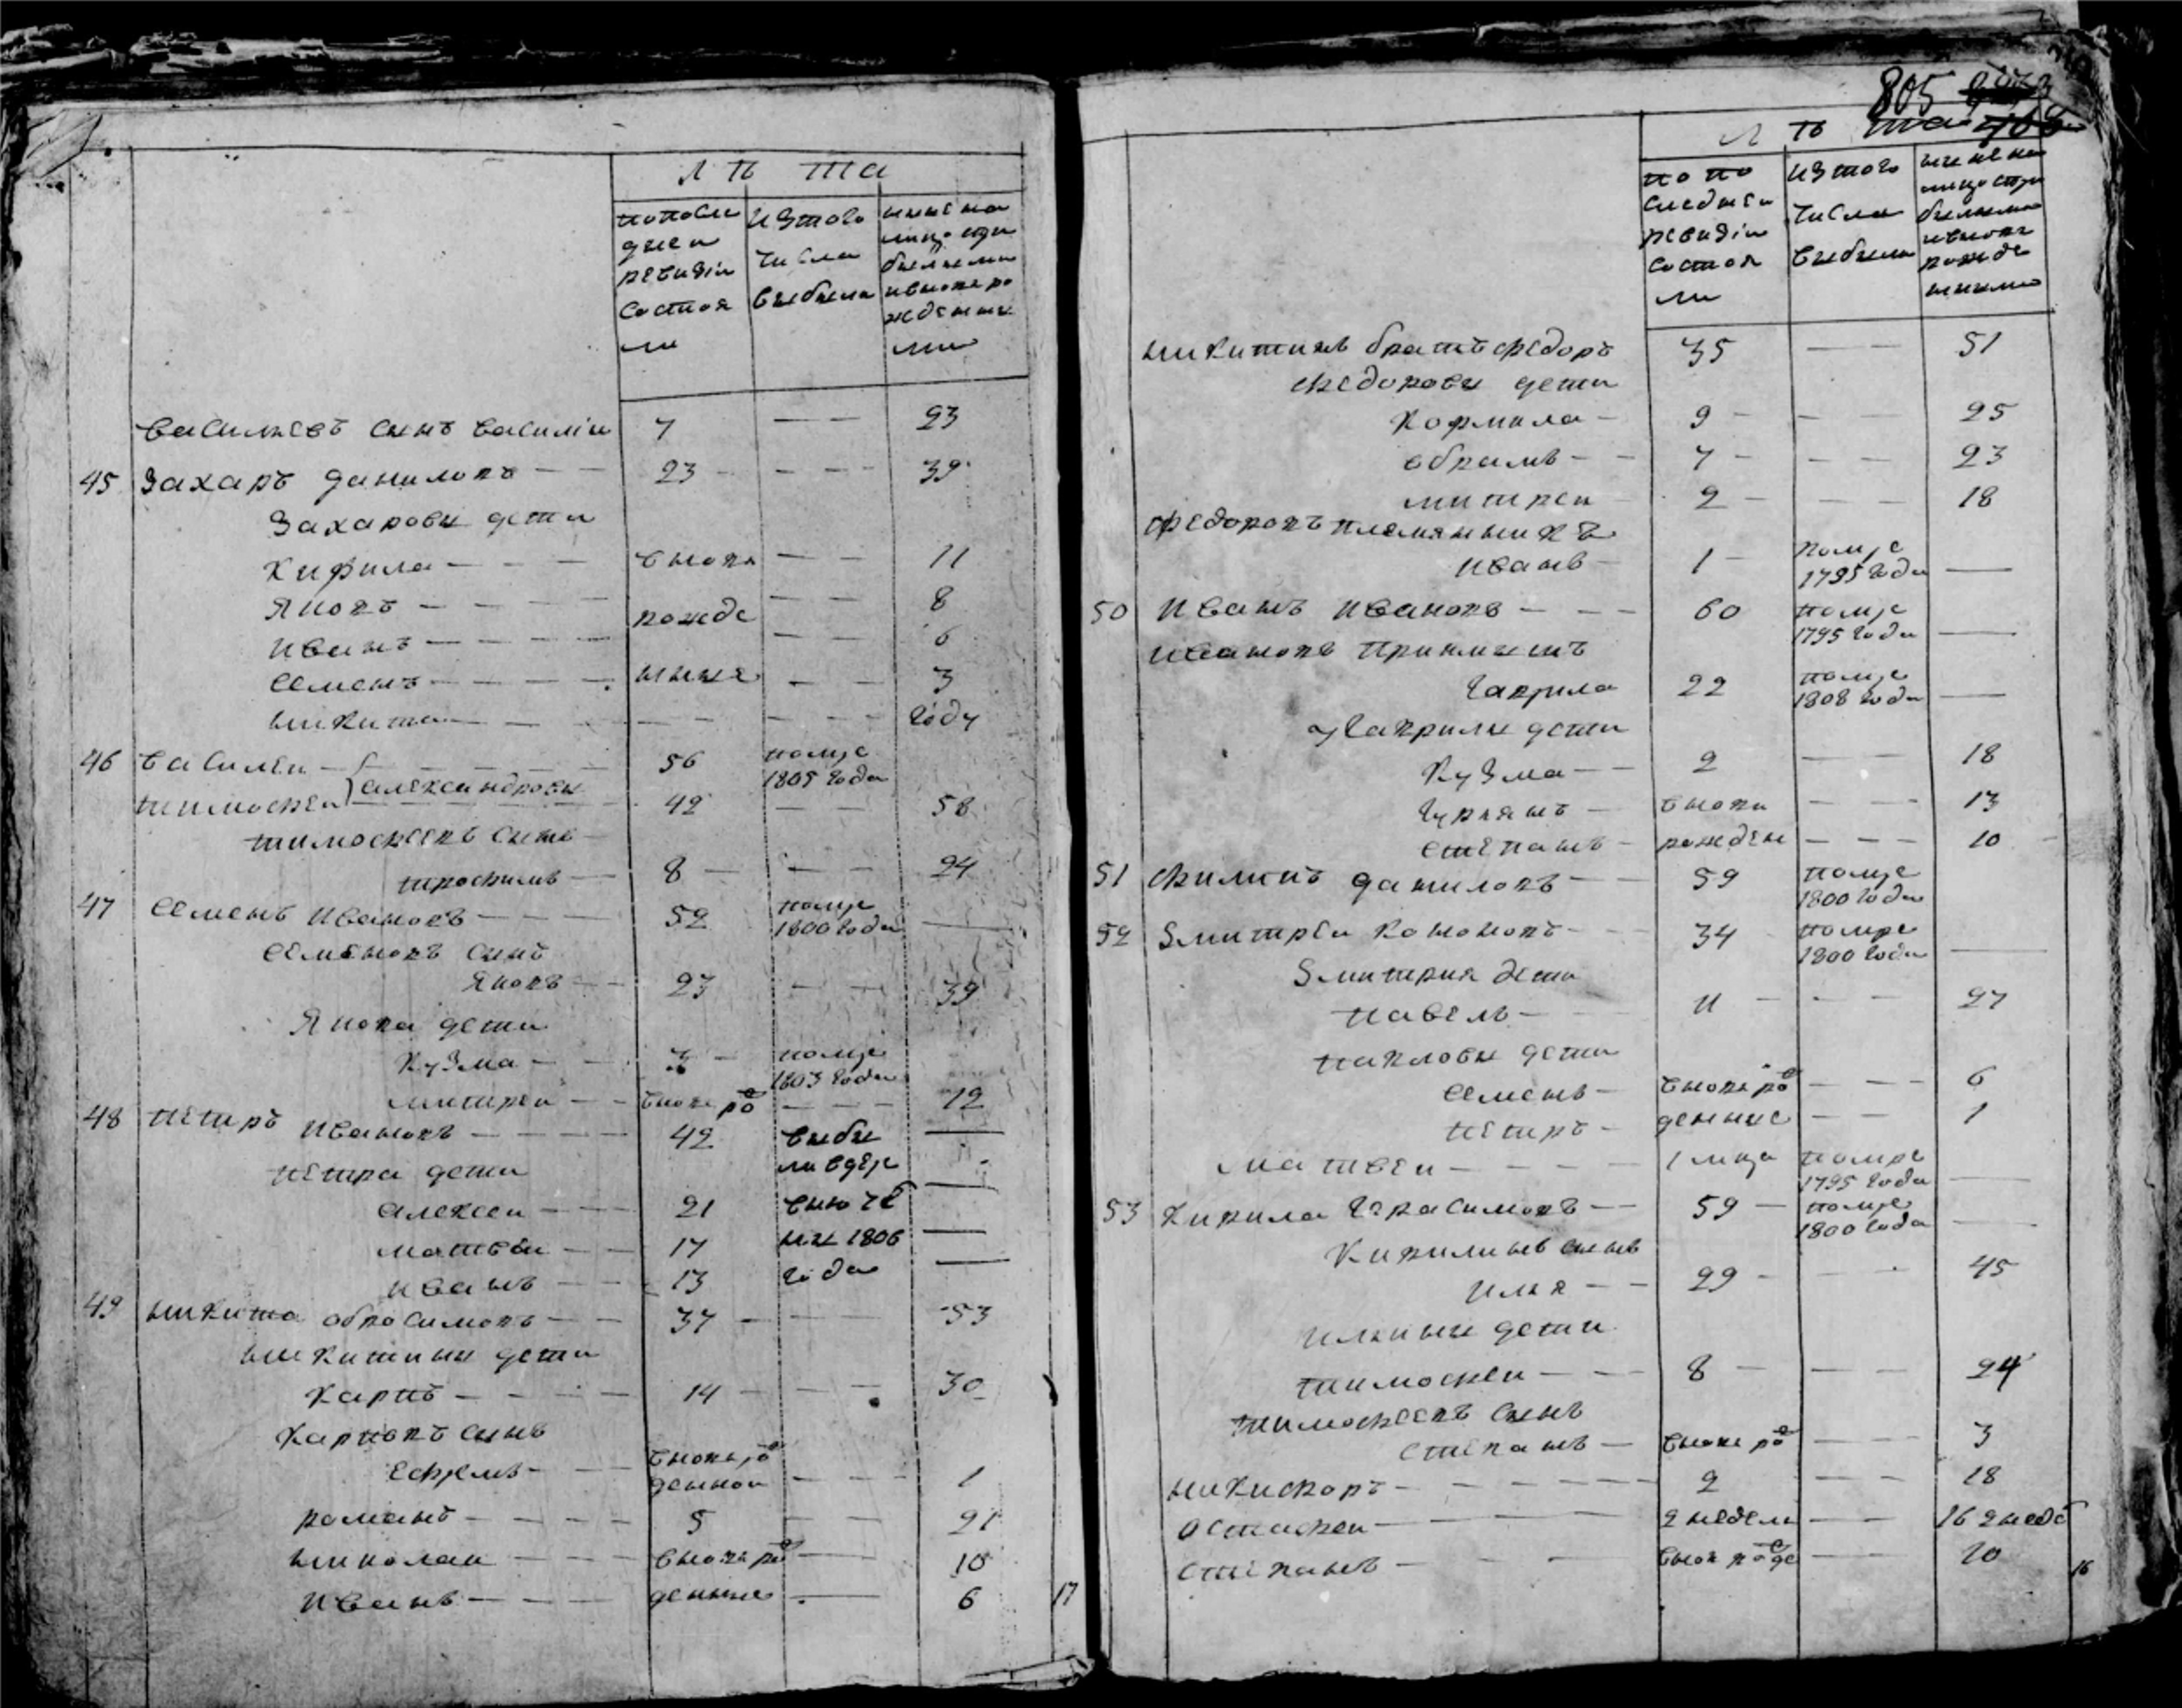 Л Ѣ та
попосле
днеи
ревизіи
состоя
ли
изтого
числа
выбыло
ныне на
лицо спри
былыми
ивновь ро
жденны
ми
Васильевъ сынъ василіи 7 — — 23
45 Захаръ даниловъ — — 23 — — — 39
Захаровы дети
Кирила — — — вновь — — 11
Яковъ — — — — рожде — — 8
иванъ — — — — — — 6
семенъ — — — — нныя — — 3
никита — — — — — — — году
46 василеи — 56 помре 1805 года
александровы
тимофеи 42 — — 58
тимофеевъ сынъ
трофимъ — 8 — — — 24
47 семенъ ивановъ — — — 52 помре 1800 года —
семеновъ сынъ
Яковъ — — 23 — — 39
Якова дети
кузма — — 3 — помре 1803 года
митреи — — вновь ро — — — 12
48 петръ ивановъ — — — — 42 выбы —
петра дети
алексеи — — — 21 —
матвеи — — 17 ны 1806 —
иванъ — — 13 года —
49 никита обросимовъ — — 37 — — — 53
никитины дети
карпъ — — — — 14 — — — 30
карповъ сынъ
ефремъ — — вновь ро
деннои — — — 1
романъ — — — — 5 — — 21
николаи — — — вновь ро — 10
иванъ — — — денные — 6
17
805
Л Ѣ та
по по
следнеи
ревизіи
состоя
ли
изтого
числа
выбыло
ныне на
лицо спри
былыми
ивновь
рожде
нными
никитинъ братъ федоръ 35 — — 51
федоровы дети
кормила — 9 — — — 25
абрамъ — — 7 — — — 23
митреи 2 — — — 18
федоровъ племянникъ
иванъ — 1 — помре 1795 года —
50 иванъ ивановъ — — — 60 помре 1795 года —
ивановъ приимышъ
гаврила 22 помре 1808 года —
у гаврилы дети
кузма — — 2 — — 18
гурьянъ — вновь — — — 13
степанъ — рожден — — — 10
51 филипъ даниловъ — — 59 помре 1800 года
52 Змитреи кононовъ — — 34 помре 1800 года —
Змитрия дети
павелъ — 11 — — — 27
павловы дети
семенъ — вновь ро — — — 6
петръ — денные — — 1
матвеи — — — — 1 мца помре 1795 года —
53 кирила герасимовъ — — 59 — помре 1800 года —
кирилинъ сынъ
илья — — 29 — — — 45
ильины дети
тимофеи — — — 8 — — — 24
тимофеевъ сынъ
степанъ — вновь ро — — — 3
никифоръ — — — — — — 2 — — 18
астафеи — — — — — 2 недели — — 16 2 недѣ
степанъ — — — вновь роде — — 10
16